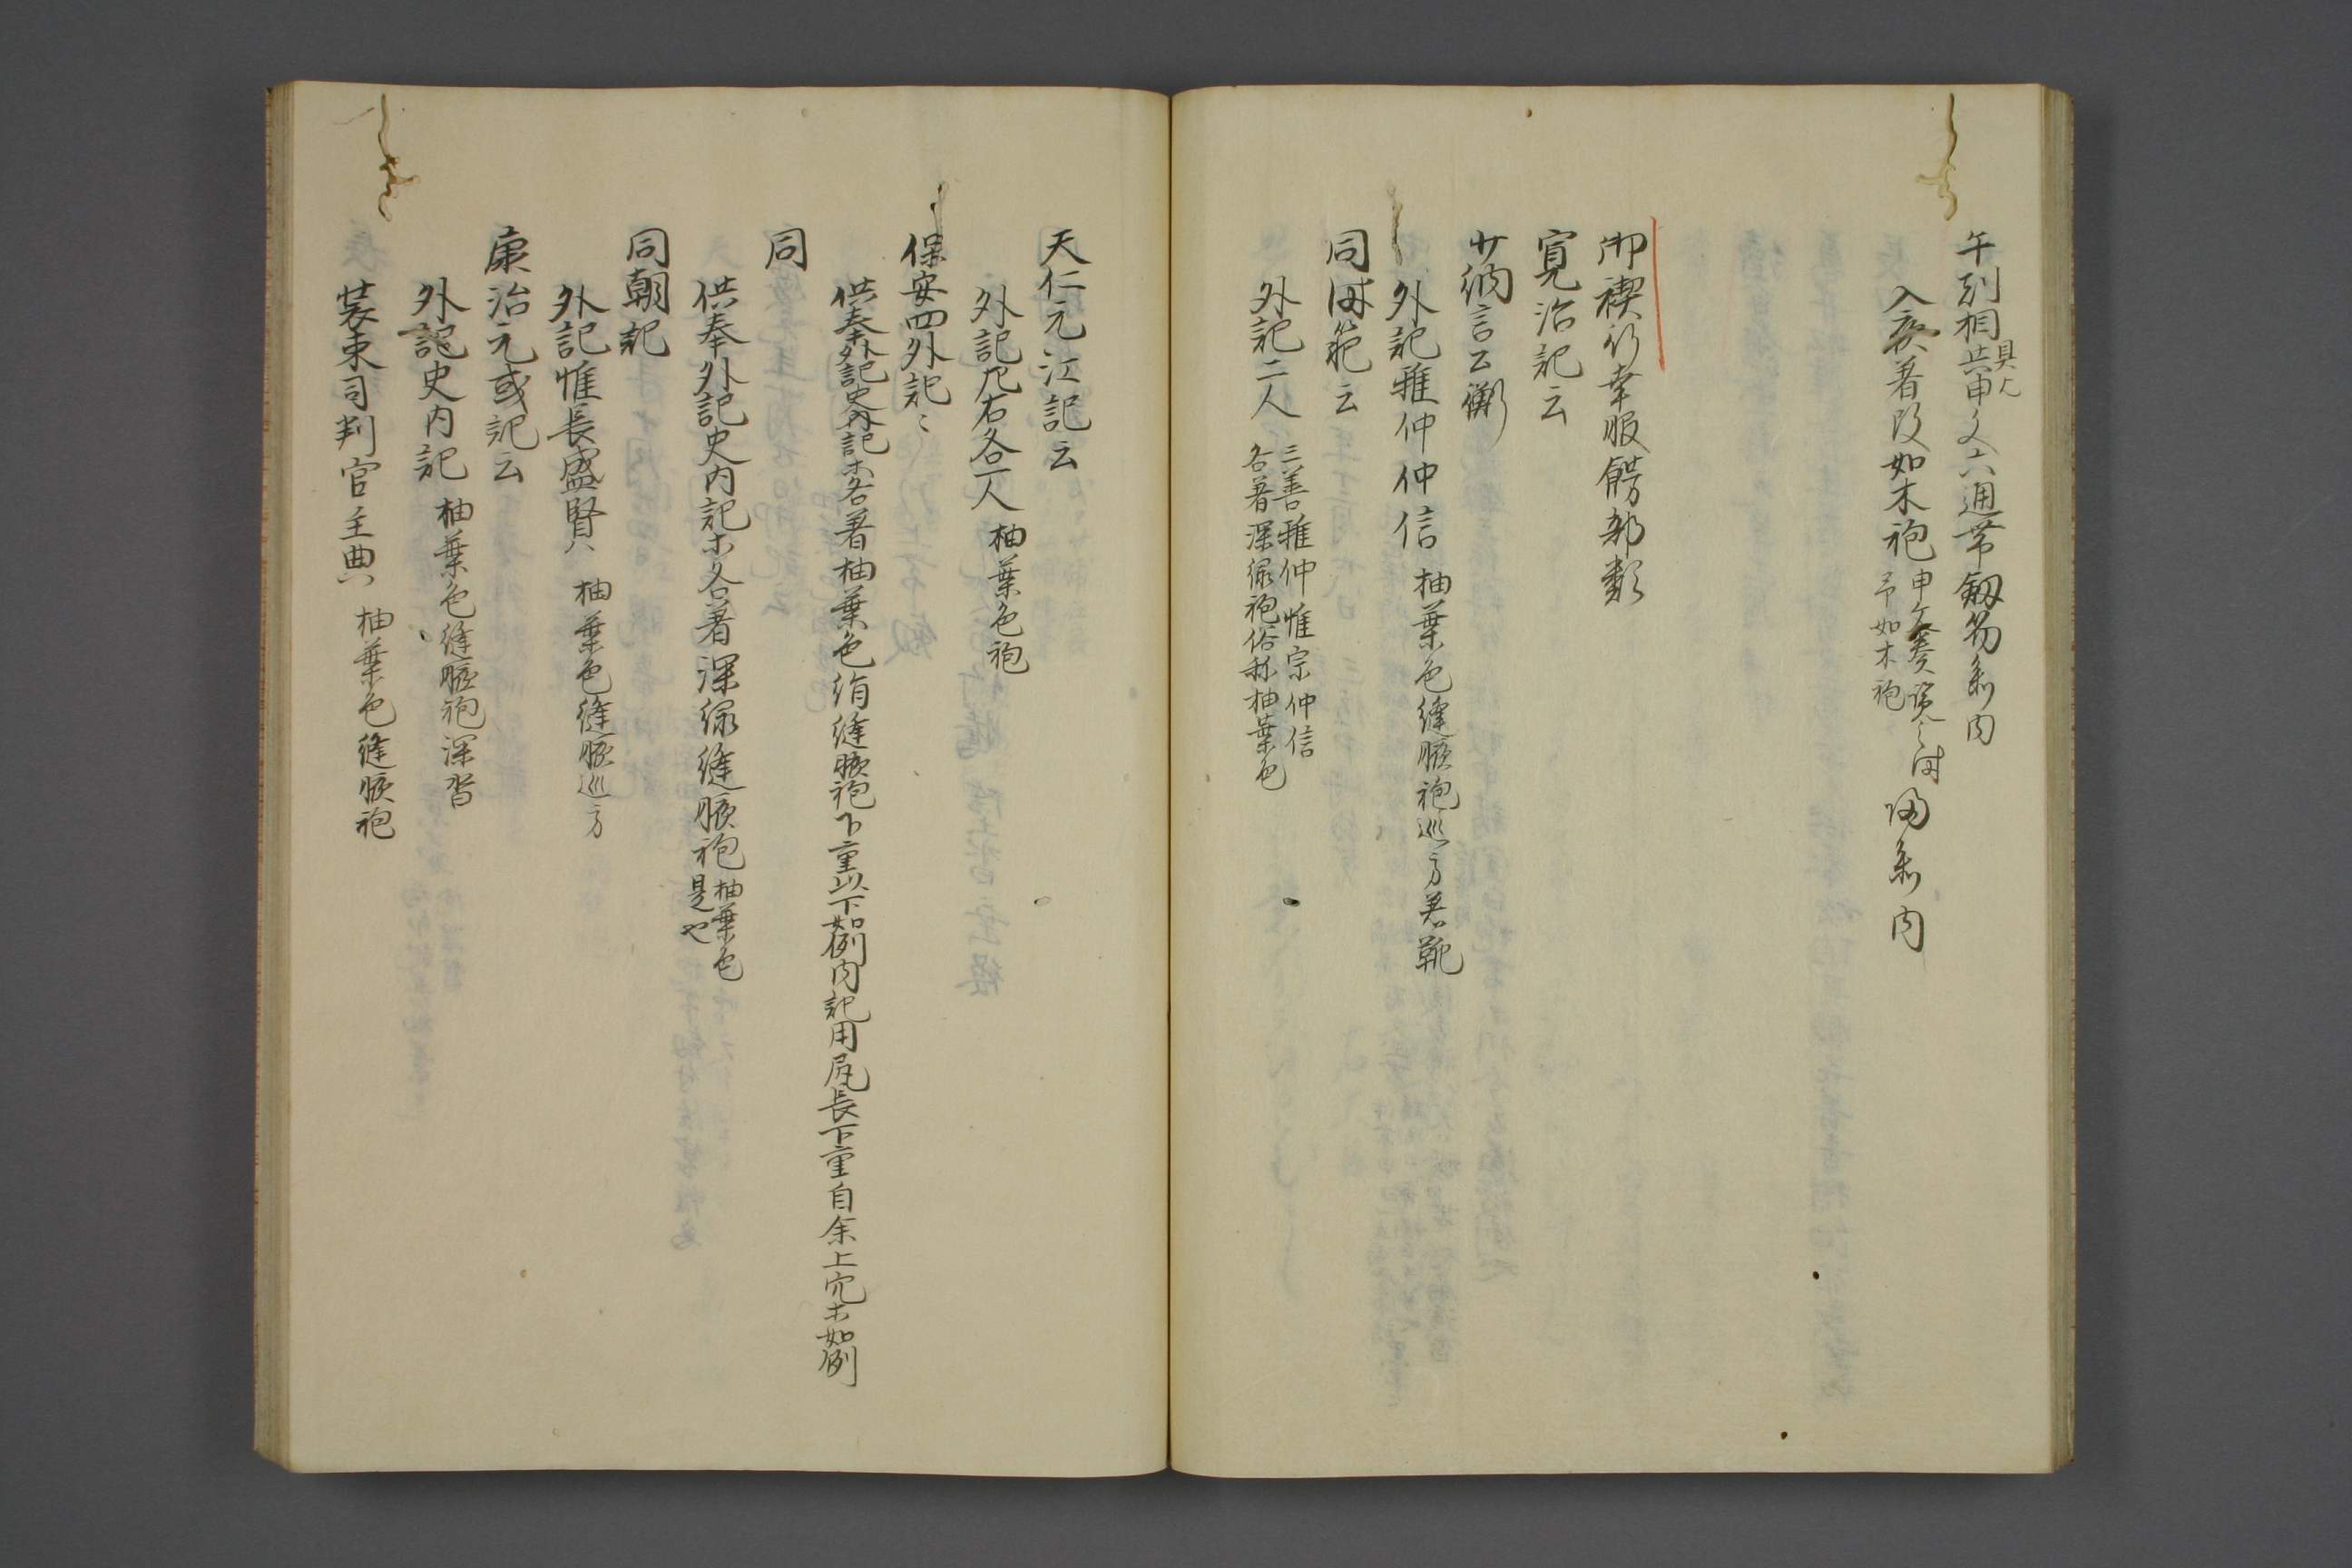 午刻相共申文六通帯劔笏参内
具之
入夜着改如木袍
申文奏覧之時
予如木袍
帰参内
御禊行幸服餝部類
寛治記云
少納言公衡
外記雅仲仲信 柚葉色縫腋袍巡方着靴
同師記云
外記二人
三善雅仲惟宗仲信
各著深緑袍俗称柚葉色
天仁元江記云
外記左右各一人 柚葉色袍
保安四外記云
供奉外記史内記ホ各著柚葉色絹縫腋袍下重以下如例内記用尻長下重自余上宂ホ如例
同
供奉外記史内記ホ各著深緑縫腋袍
柚葉色
是也
同朝記
外記惟長盛賢八 柚葉色縫腋巡方
康治元或記云
外記史内記 柚葉色縫腋袍深沓
装束司判官主典 柚葉色縫腋袍